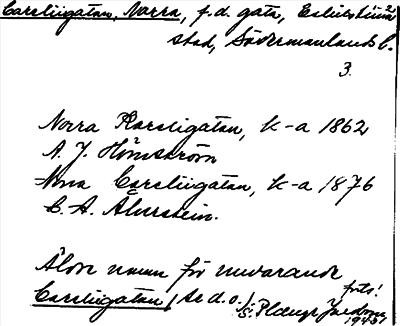 Carsliigatan, Norra, f.d. gata, Eskilstuna
stad, Södermanlands l.
3.
Norra Karsligatan, k-a 1862
A. J. Hörnström
Norra Carsliigatan, k-a 1876
C. A. Alverstein.
Äldre namn för nuvarande
Carsliigatan (se d.o.) forts!
1945